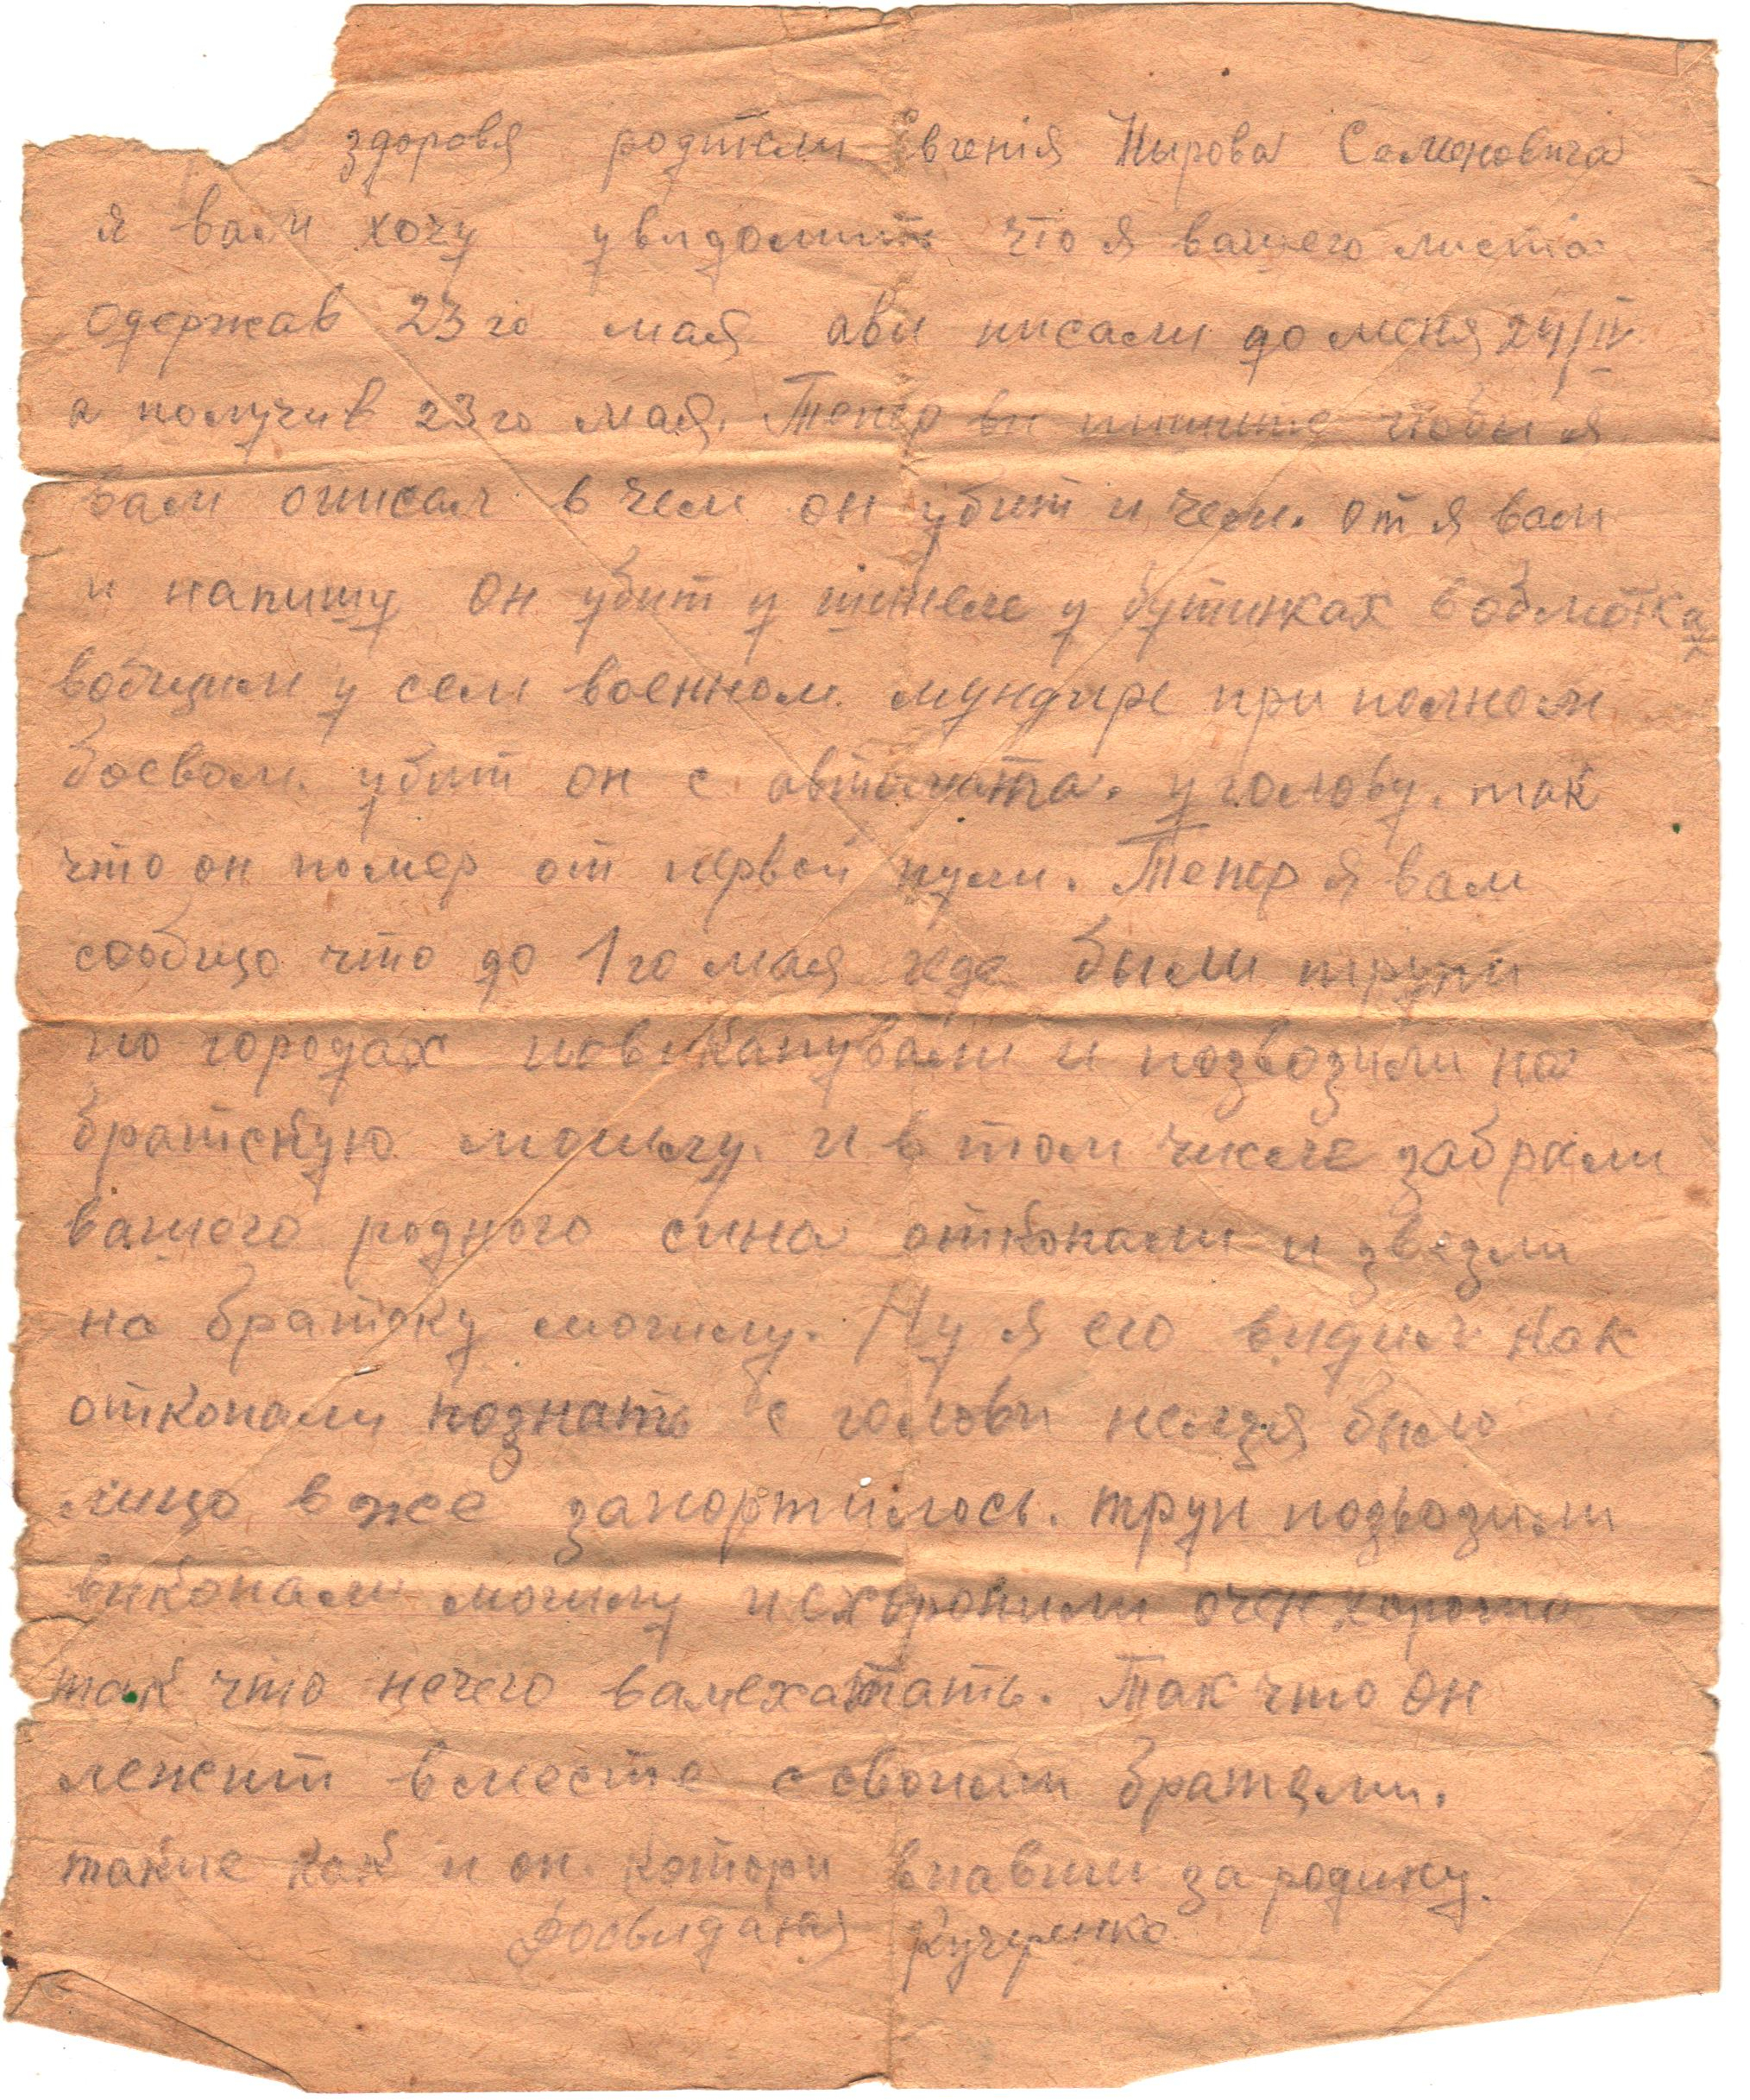 здоровя родтели Евгенія Нырова Семеновича
я вам хочу увидомит что я вашего листа
одержав 23го мая ави писали до меня 24/IV
а получив 23го мая. Тепер ви пишите чтоби я
вам описал в чем он убит и чем. от я вам
и напишу он убит у шинеле у бутинках в обмотках
вобщим у сем военном мундире при полном
боевом. убит он с автомата. у голову. так
что он помер от первой пули. Тепер я вам
сообщо что до 1го мая геде были трупи
по городах повикапували и позвозили на
братскую могылу. и в том числе забрали
вашего родного сина откопали и звезли
на братску могилу. Ну я его видил как
откопали познать с голови нелзя било
лицо вже запортилось. труп подвозили
викопали могилу исхоронили очен хорошо
так что нечего вамехатать. Так что он
лежит вместе с своими братями.
такие как и он. котори впавши за родину.
Досвиданя Кучеренко